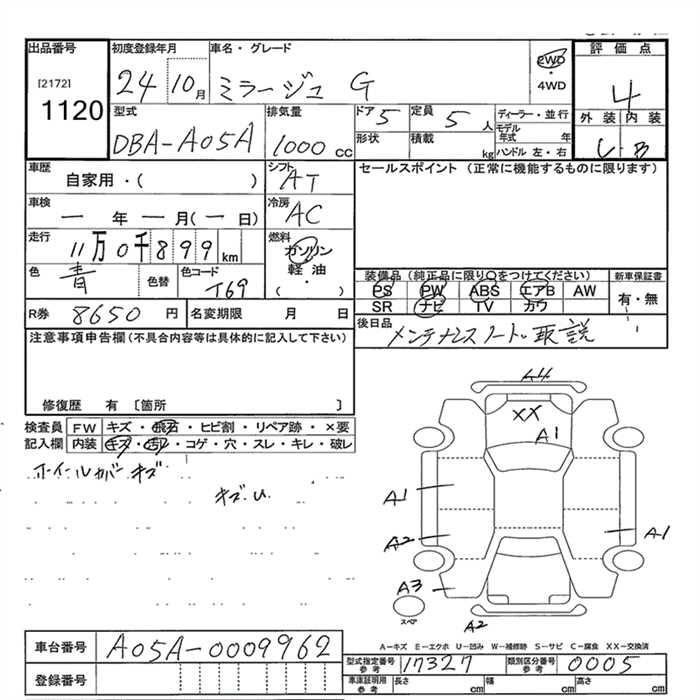 出品番号 初度登録年月 車名・グレード 評価点
[2172] 1120 24 10月 ミラージュ G 2WD ・ 4WD 4
型式 排気量 ドア 5 定員 5人 ディーラー・並行 外装 内装
DBA-A05A 1000 cc 形状 積載 kg モデル年式 年 ハンドル 左・右 B
車歴 シフト セールスポイント (正常に機能するものに限ります)
自家用・( ) AT
車検 冷房
ー 年 ー 月(ー 日) AC
走行 燃料
11万0千899km ガソリン
色 色替 色コード 軽油
青 T69 ・( )
装備品(純正品に限り○をつけてください) 新車保証書
PS PW ABS エアB AW 有・無
SR ナビ TV カワ
R券 8650 円 名変期限 月 日 後日品 メンテナンスノート・取説
注意事項申告欄(不具合内容等は具体的に記入して下さい)
修復歴 有 〔箇所 〕
検査員 FW キズ・飛石・ヒビ割・リペア跡・×要
記入欄 内装 キズ・汚レ・コゲ・穴・スレ・キレ・破レ
ホイールカバーキズ
キズ.U
A4
XX
A1
A1
A2 A1
A3
スペア A2
A-キズ E-エクボ U-凹み W-補修跡 S-サビ C-腐食 XX-交換済
車台番号 A05A-0009962
型式指定番号 参考 17327 類別区分番号 参考 0005
登録番号 車庫証明用 参考 長さ cm 幅 cm 高さ cm